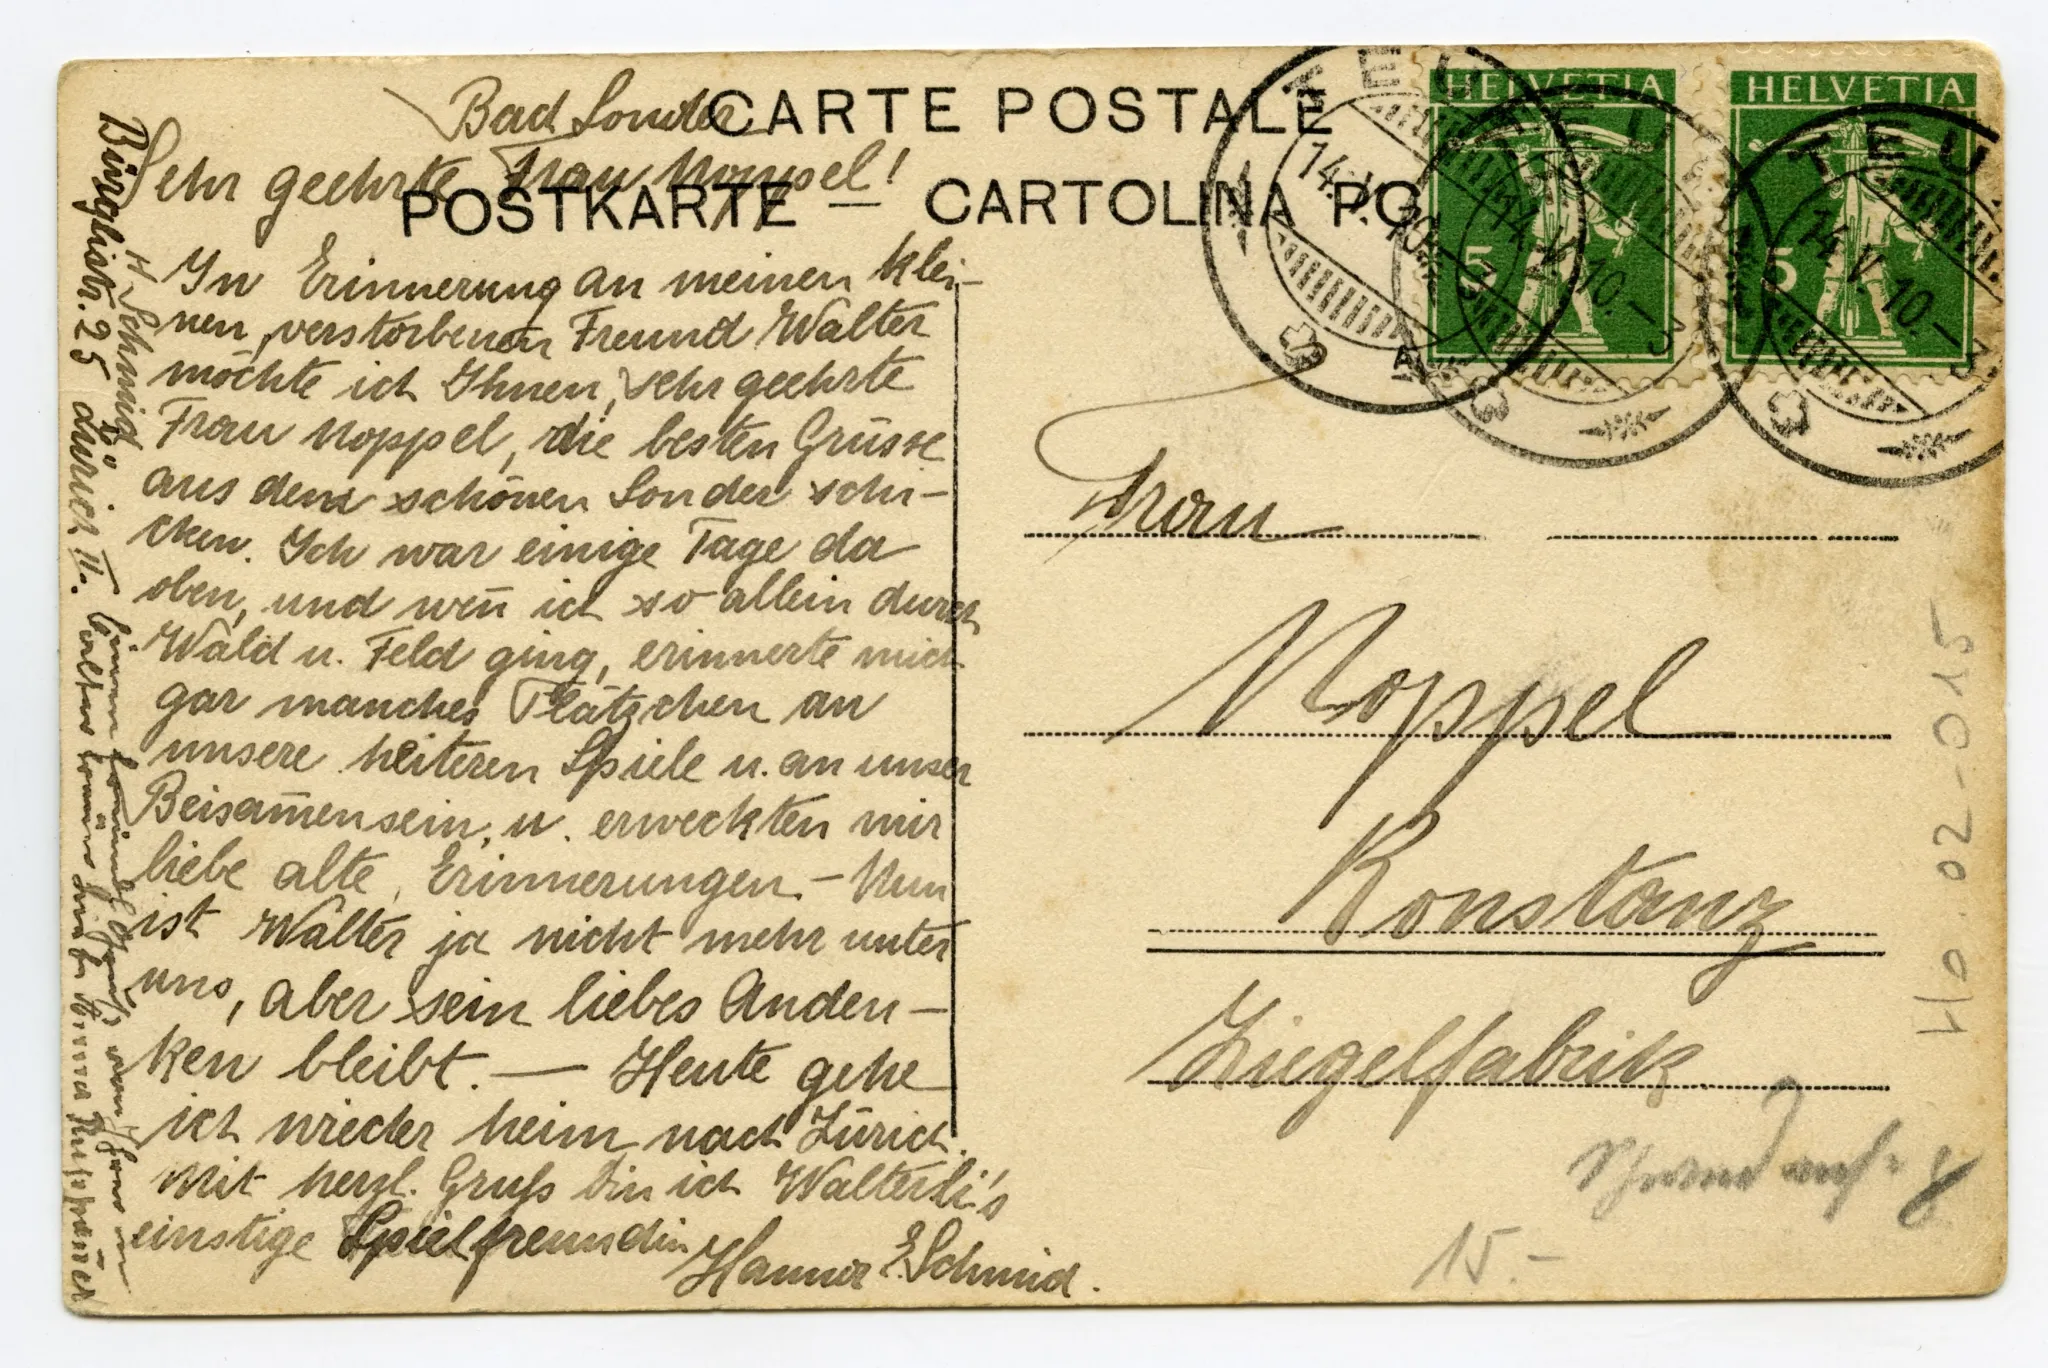 CARTE POSTALE
POSTKARTE — CARTOLINA PO
HELVETIA
5
HELVETIA
5
TEU
14.V.10.-3
TEU
14.V.10.-3
TEU
14.V.10.-3
Bad Sonder
Sehr geehrte Frau Noppel!
In Erinnerung an meinen klei-
nen, verstorbenen Freund Walter
möchte ich Ihnen, sehr geehrte
Frau Noppel, die besten Grüsse
aus dem schönen Sonder schi-
cken. Ich war einige Tage da
oben, und weñ ich so allein durch
Wald u. Feld ging, erinnerte mich
gar manches Plätzchen an
unsere heiteren Spiele u. an unser
Beisam̄ensein, u. erweckten mir
liebe alte Erinnerungen. – Nun
ist Walter ja nicht mehr unter
uns, aber sein liebes Anden-
ken bleibt. — Heute gehe
ich wieder heim nach Zürich.
Mit herzl. Gruß bin ich Walterli's
einstige Spielfreundin
Hanna E. Schmid.
H. Schmid
Bürglistr. 25 Zürich II.
Frau
Noppel
Konstanz
Ziegelfabrik
15.-
HO-02-015